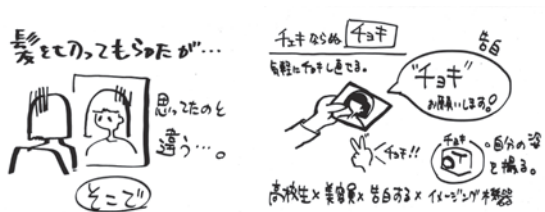 髪を切ってもらったが…
思ってたのと
違う…。
そこで
チェキならぬ チョキ
気軽にチョキし直せる。
告白
"チョキ"
お願いします。
チョキ!!
チョキ
自分の姿
を撮る。
高校生×美容室×告白する×イメージング機器